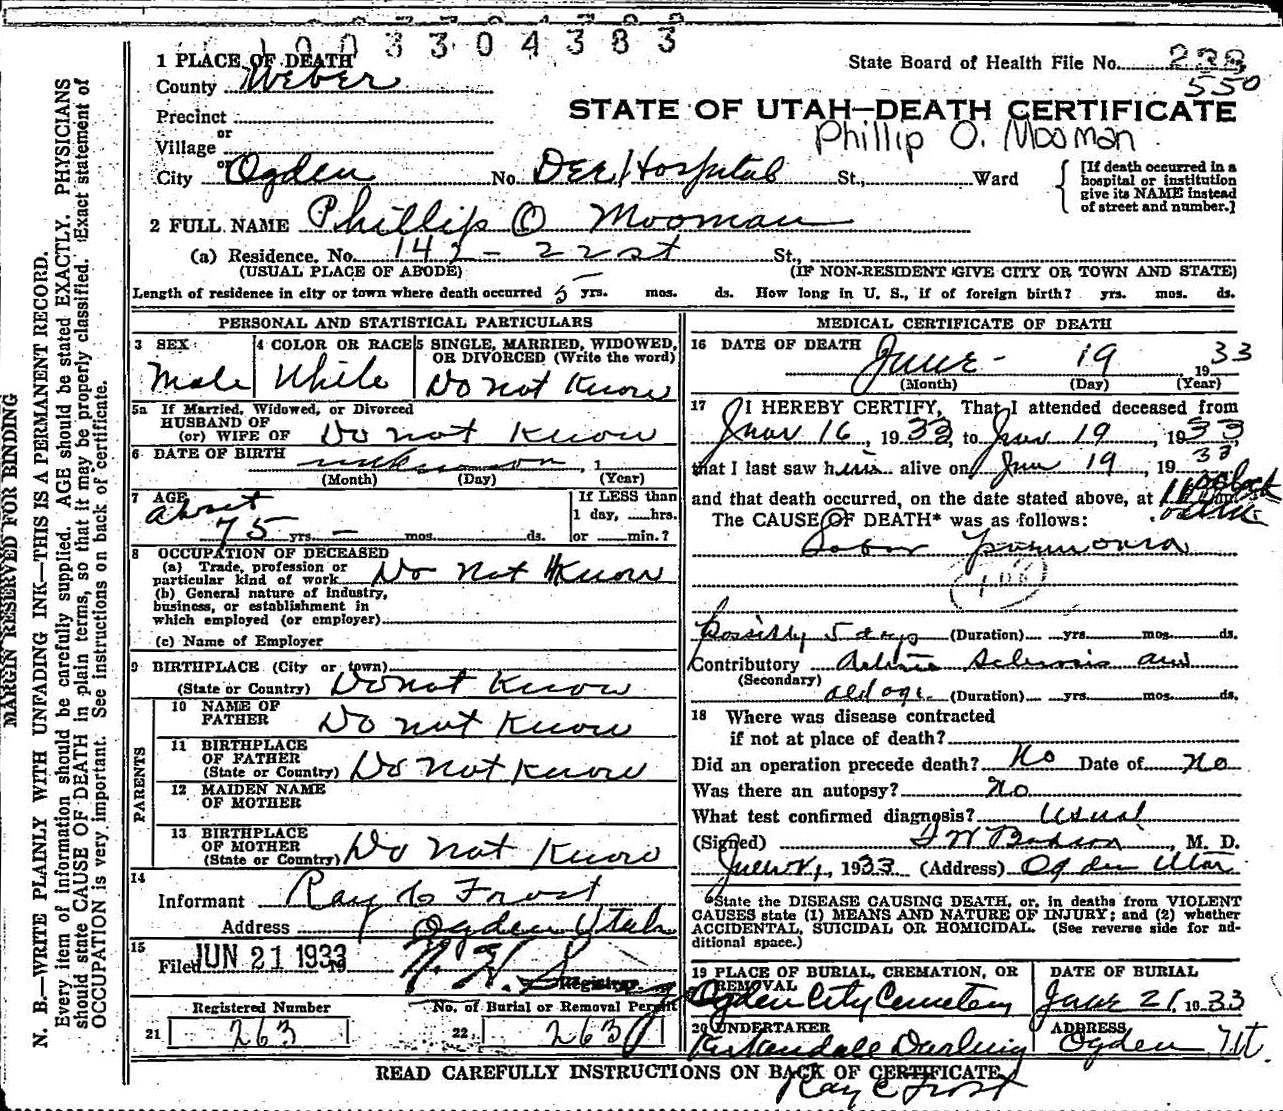 1003304383
1 PLACE OF DEATH
State Board of Health File No. 238
550
County Weber
STATE OF UTAH—DEATH CERTIFICATE
Precinct
Phillip O. Mooman
or
Village
or
City Ogden No. Dee Hospital St., Ward
[If death occurred in a hospital or institution give its NAME instead of street and number.]
2 FULL NAME Phillip O Mooman
(a) Residence. No. 142 - 22st St.,
(USUAL PLACE OF ABODE) (IF NON-RESIDENT GIVE CITY OR TOWN AND STATE)
Length of residence in city or town where death occurred 5 yrs. mos. ds. How long in U. S., if of foreign birth? yrs. mos. ds.
PERSONAL AND STATISTICAL PARTICULARS
3 SEX 4 COLOR OR RACE 5 SINGLE, MARRIED, WIDOWED,
OR DIVORCED (Write the word)
Male White Do not Know
5a If Married, Widowed, or Divorced
HUSBAND OF
(or) WIFE OF Do not Know
6 DATE OF BIRTH unknown, 1
(Month) (Day) (Year)
7 AGE If LESS than
about 1 day, hrs.
75 yrs. - mos. ds. or min.?
8 OCCUPATION OF DECEASED
(a) Trade, profession or
particular kind of work Do not Know
(b) General nature of industry,
business, or establishment in
which employed (or employer)
(c) Name of Employer
9 BIRTHPLACE (City or town)
(State or Country) Do not Know
PARENTS
10 NAME OF
FATHER Do not Know
11 BIRTHPLACE
OF FATHER
(State or Country) Do not Know
12 MAIDEN NAME
OF MOTHER
13 BIRTHPLACE
OF MOTHER
(State or Country) Do not Know
14
Informant Ray C Frost
Address Ogden Utah
15
Filed JUN 21 1933 19
Registrar
Registered Number No. of Burial or Removal Permit
21 263 22 263
MEDICAL CERTIFICATE OF DEATH
16 DATE OF DEATH
June - 19 1933
(Month) (Day) (Year)
17 I HEREBY CERTIFY, That I attended deceased from
Jun 16, 1933, to Jun 19, 1933,
that I last saw him alive on Jun 19, 1933
and that death occurred, on the date stated above, at 11
The CAUSE OF DEATH* was as follows:
Lobar Pneumonia
108
Possibly 5 days (Duration) yrs. mos. ds.
Contributory Arterio Sclerosis and
(Secondary)
old age. (Duration) yrs. mos. ds.
18 Where was disease contracted
if not at place of death?
Did an operation precede death? No Date of no
Was there an autopsy? no
What test confirmed diagnosis? Usual
(Signed) M. D.
1933 (Address) Ogden Utah
*State the DISEASE CAUSING DEATH, or, in deaths from VIOLENT
CAUSES state (1) MEANS AND NATURE OF INJURY; and (2) whether
ACCIDENTAL, SUICIDAL OR HOMICIDAL. (See reverse side for ad-
ditional space.)
19 PLACE OF BURIAL, CREMATION, OR DATE OF BURIAL
REMOVAL
Ogden City Cemetery June 21, 1933
20 UNDERTAKER ADDRESS
Kirkendall Darling Ogden, Ut.
READ CAREFULLY INSTRUCTIONS ON BACK OF CERTIFICATE
Ray C Frost
MARGIN RESERVED FOR BINDING
N. B.—WRITE PLAINLY WITH UNFADING INK—THIS IS A PERMANENT RECORD.
Every item of information should be carefully supplied. AGE should be stated EXACTLY. PHYSICIANS
should state CAUSE OF DEATH in plain terms, so that it may be properly classified. Exact statement of
OCCUPATION is very important. See instructions on back of certificate.